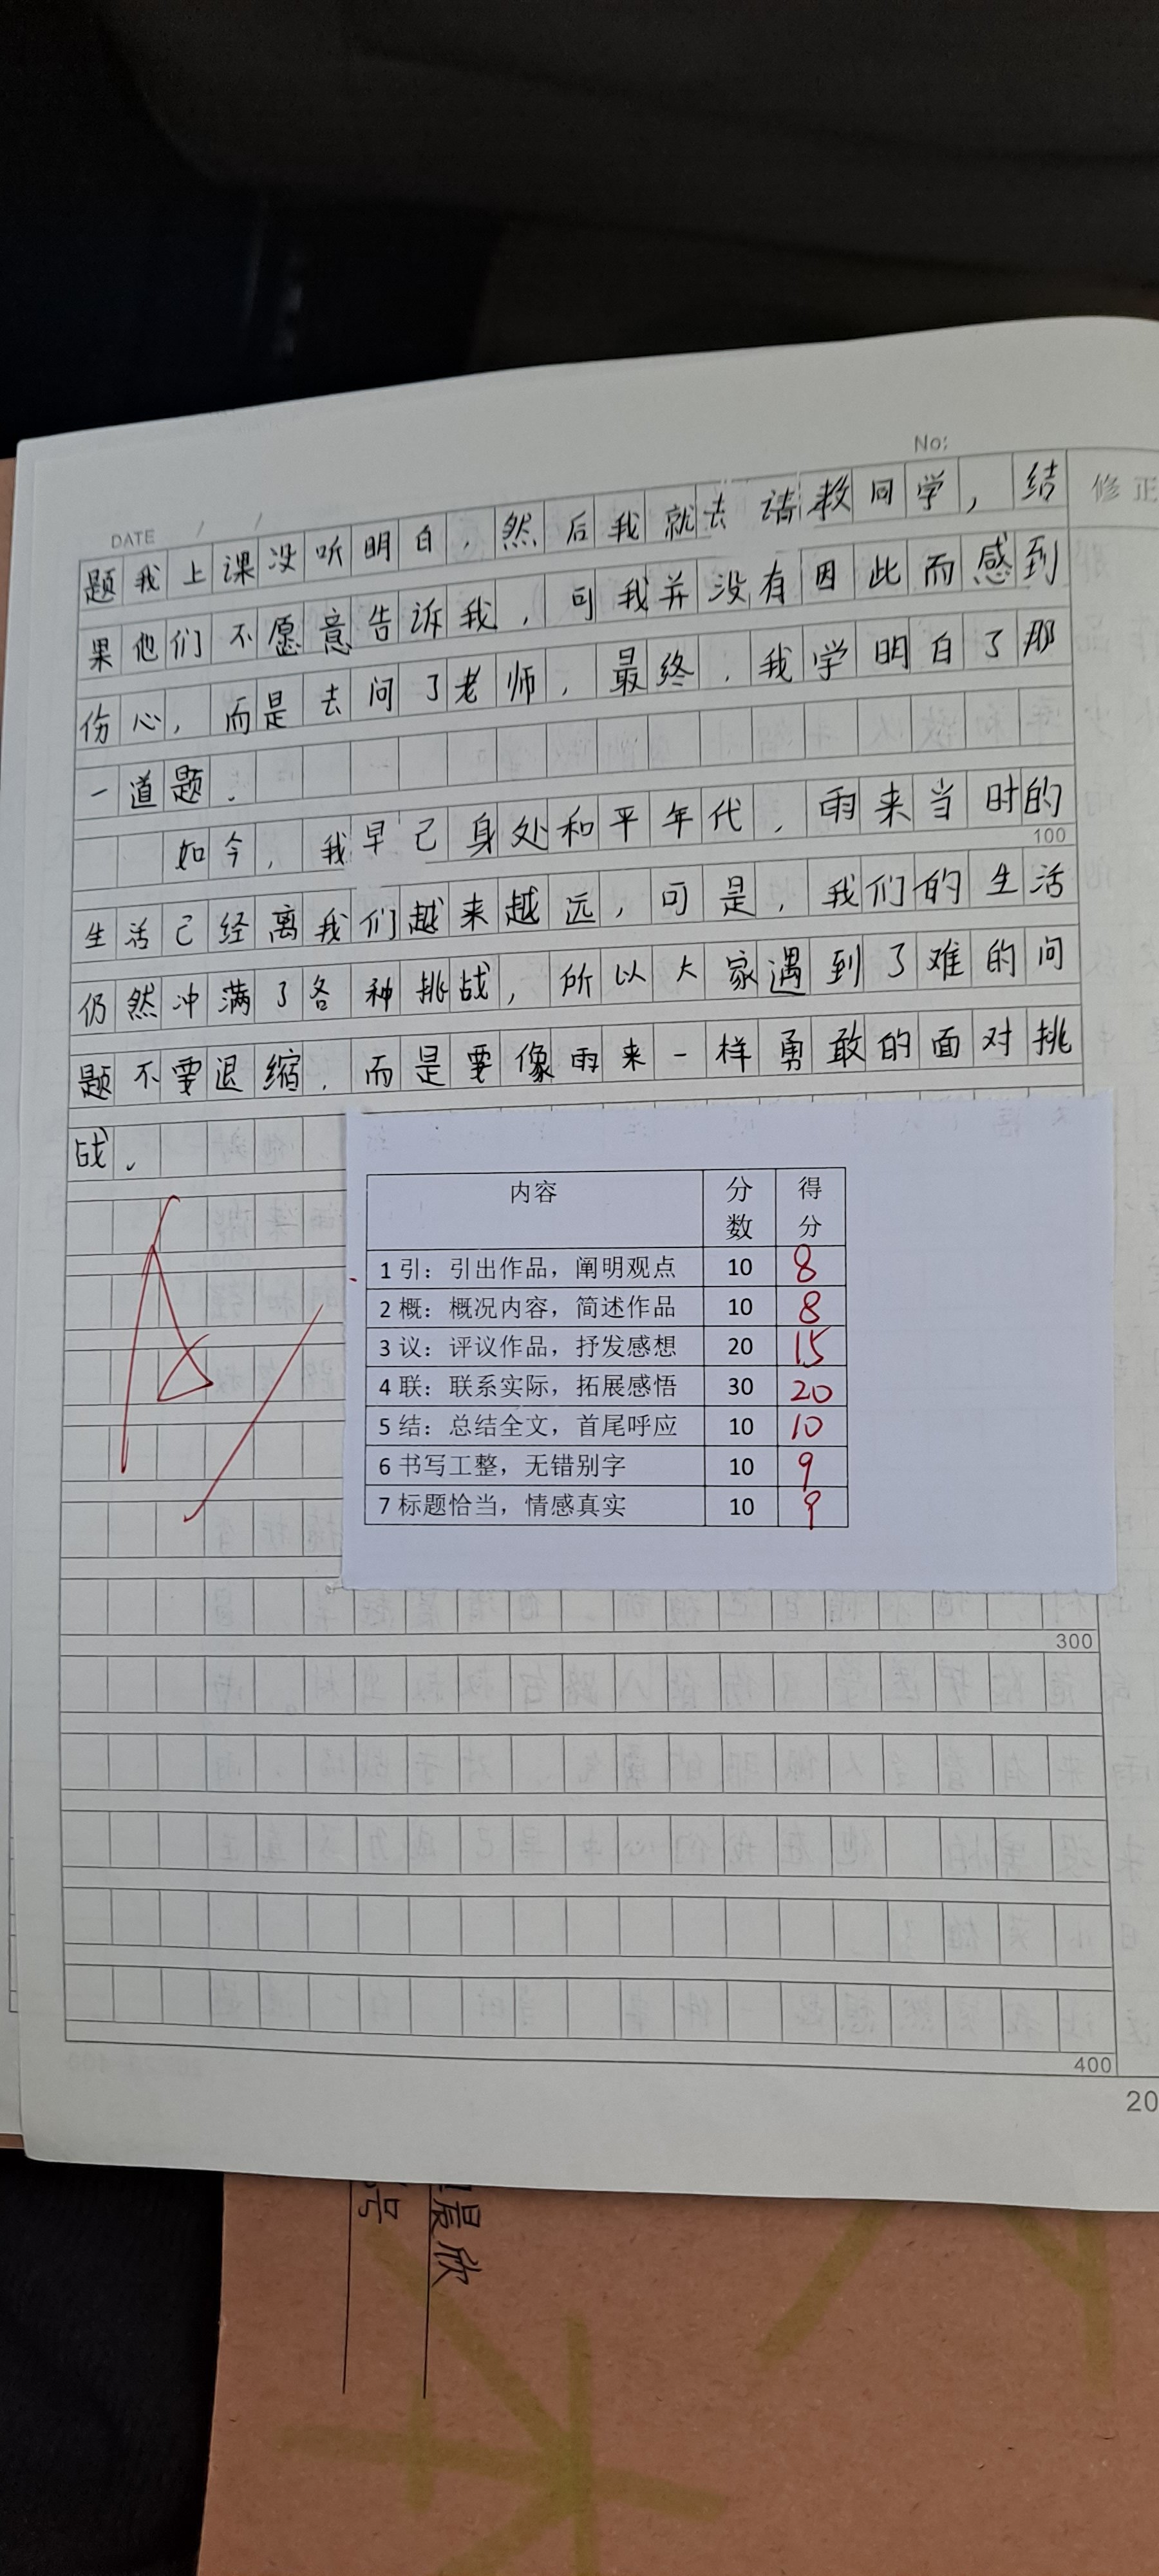 No:
修正
DATE / /
题我上课没听明白，然后我就去请教同学，结
果他们不愿意告诉我，可我并没有因此而感到
伤心，而是去问了老师，最终，我学明白了那
一道题。
如今，我早已身处和平年代，雨来当时的
100
生活已经离我们越来越远，可是，我们的生活
仍然冲满了各种挑战，所以大家遇到了难的问
题不要退缩，而是要像雨来一样勇敢的面对挑
战。
内容 分数 得分
1 引：引出作品，阐明观点 10 8
2 概：概况内容，简述作品 10 8
3 议：评议作品，抒发感想 20 15
4 联：联系实际，拓展感悟 30 20
5 结：总结全文，首尾呼应 10 10
6 书写工整，无错别字 10 9
7 标题恰当，情感真实 10 9
300
400
20
号
晨欣